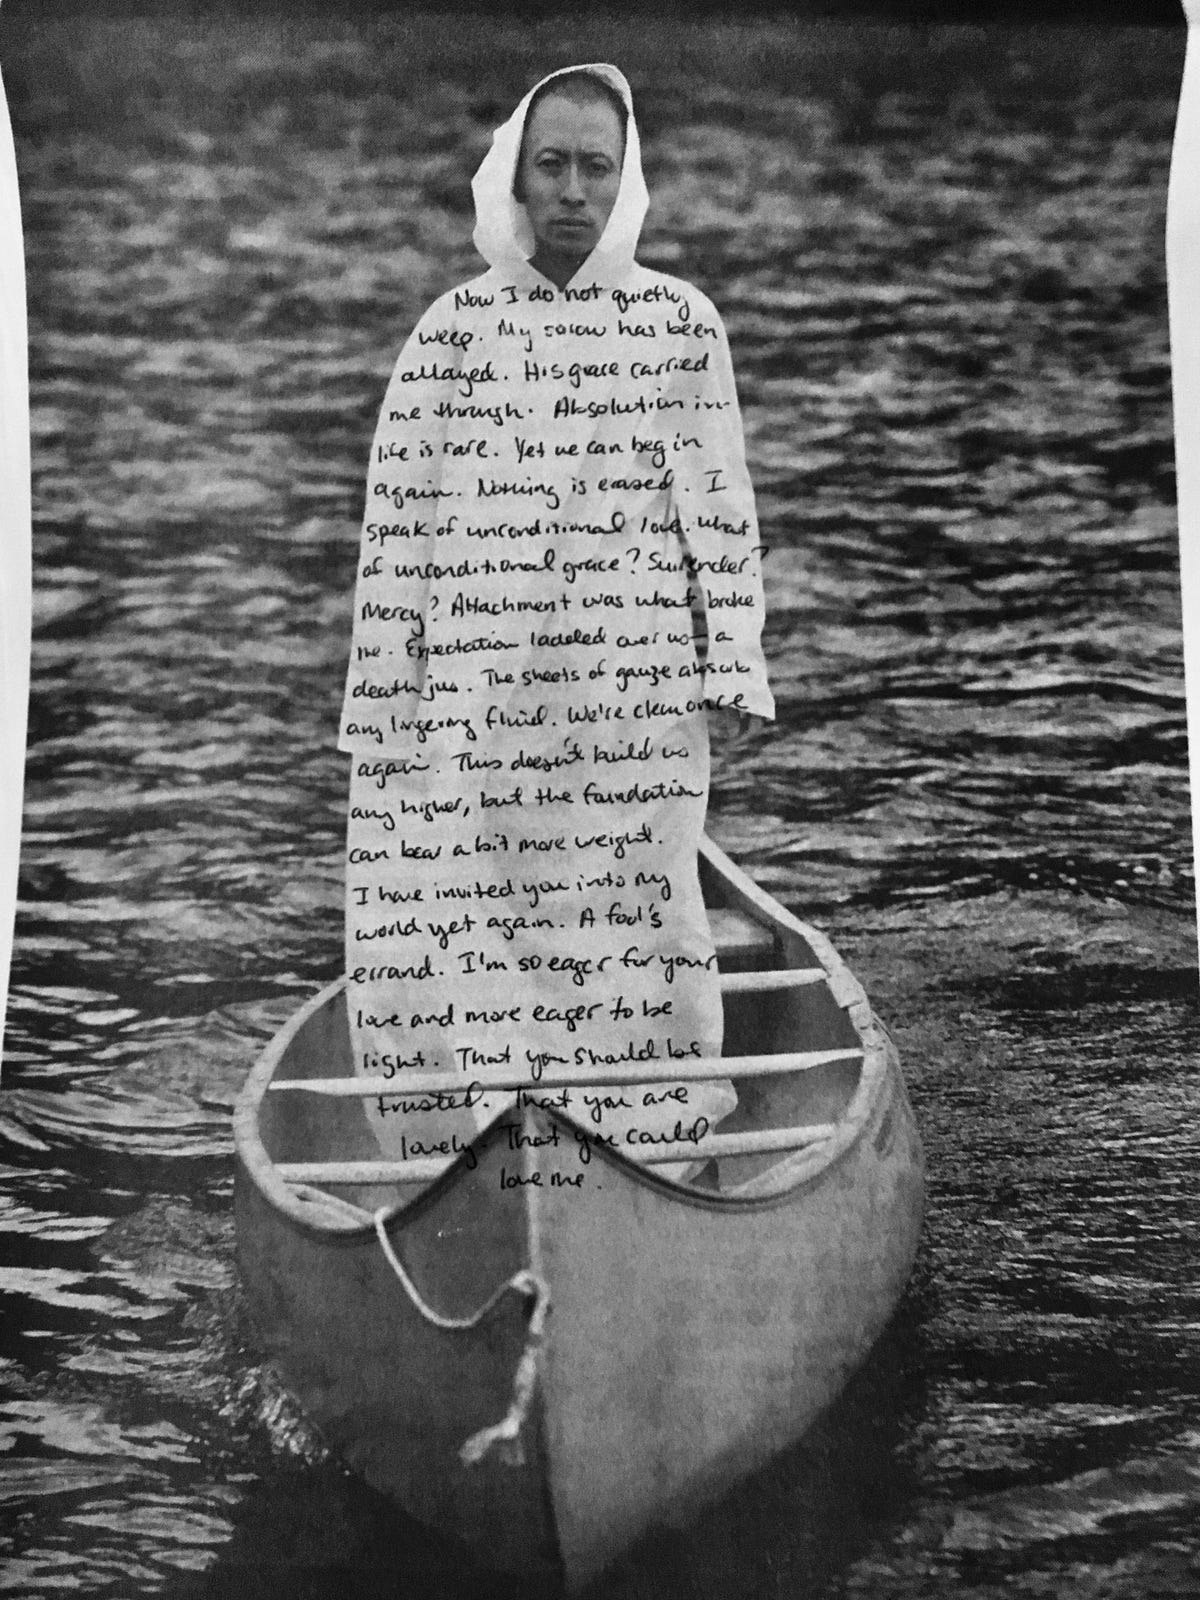 Now I do not quietly
weep. My sorow has been
allayed. His grace carried
me through. Absolution in
life is rare. Yet we can begin
again. Nothing is erased. I
speak of unconditional love. What
of unconditional grace? Surrender?
Mercy? Attachment was what broke
me. Expectation ladeled over us— a
death jus. The sheets of gauze absorb
any lingering fluid. We're clean once
again. This doesn't build us
any higher, but the foundation
can bear a bit more weight.
I have invited you into my
world yet again. A fool's
errand. I'm so eager for your
love and more eager to be
light. That you should be
trusted. That you are
lovely. That you could
love me.